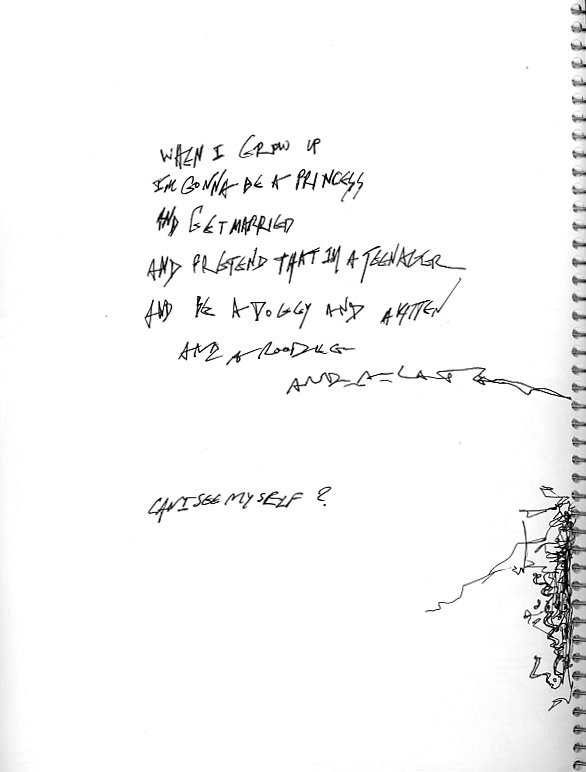 WHEN I GROW UP
IM GONNA BE A PRINCESS
AND GET MARRIED
AND PRETEND THAT IM A TEENAGER
AND BE A DOGGY AND A KITTEN
AND A
AND A
CAN I SEE MYSELF ?